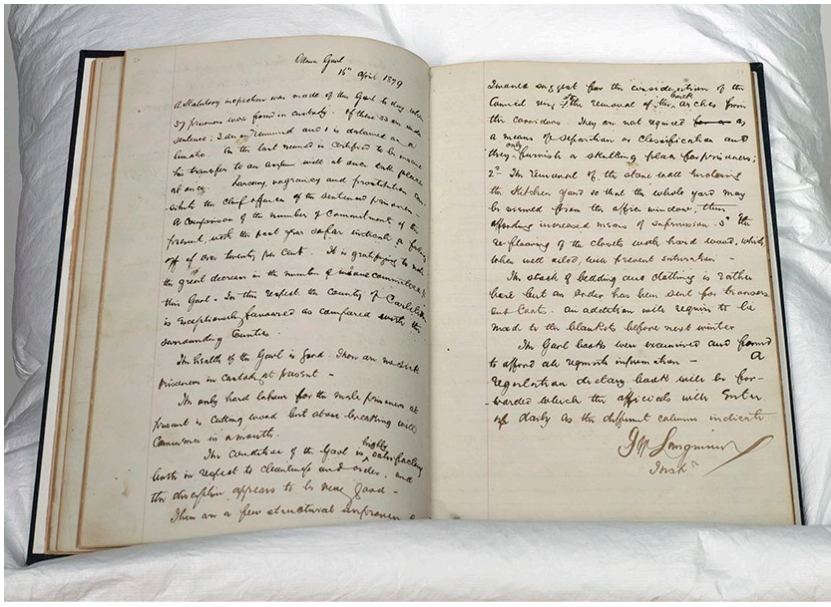 Ottawa Gaol
15th April 1879
A Statutory inspection was made of this Gaol to day when
37 prisoners were found in custody. Of these 33 are under
sentence; 3 are on remand and 1 is detained as a
lunatic. As the last named is certified to be insane
his transfer to an asylum will at once take place
at once. Larceny, vagrancy and prostitution con-
stitute the chief offences of the sentenced prisoners -
A comparison of the number of commitments of the
present, with the past year so far indicate a falling
off of over twenty per cent. It is gratifying to note
the great decrease in the number of insane committed to
this Gaol - In this respect the County of Carleton
is exceptionally favoured as compared with the
surrounding Counties -
The health of the Gaol is good. There are no sick
prisoners in custody at present -
The only hard labour for the male prisoners at
present is cutting wood but stone breaking will
commence in a month.
The condition of the Gaol is highly satisfactory
both in respect to cleanliness and order, and
the discipline appears to be very good -
There are a few structural
I would suggest for the consideration of the
Council viz; 1st the removal of the brick arches from
the corridors. They are not required as
a means of separation or classification and
they only furnish a skulking place for prisoners;
2o The removal of the stone wall enclosing
the Kitchen yard so that the whole yard may
be viewed from the office window, thus
affording increased means of supervision. 3o The
re-flooring of the closets with hard wood, which
when well oiled, will prevent saturation -
The stock of bedding and clothing is rather
bare but an order has been sent for trousers
and coats. An addition will require to be
made to the blankets before next winter
The Gaol books were examined and found
to afford all requisite information - A
regulation dietary book will be for-
warded which the officials will enter
up daily as the different columns indicate
J W Langmuir
Insp.r